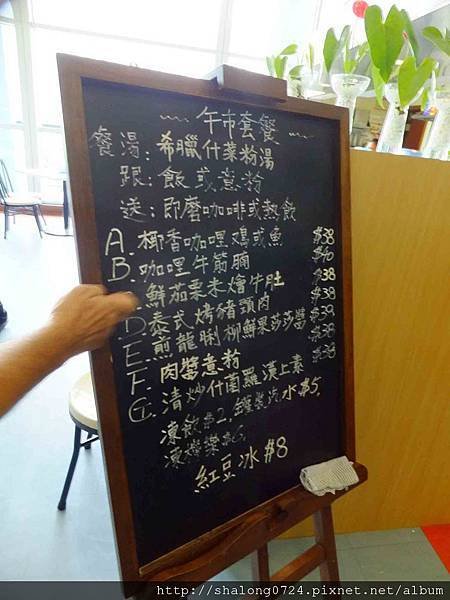 午市套餐
餐湯:希臘什菜粉湯
跟:飯或意粉
送:即磨咖啡或熱飲
A. 椰香咖哩鷄或魚 $38
B. 咖哩牛筋腩 $40
鮮茄粟米燴牛肚 $38
D. 泰式烤豬頸肉 $38
E. 煎龍脷柳鮮果莎莎醬 $39
F. 肉醬意粉 $38
G. 清炒什菌羅漢上素 $38
凍飲$2. 罐裝汽水$5.
凍檸樂$6.
紅豆冰 $8
http://shalong0724.pixnet.net/album
PIXNET.net/album